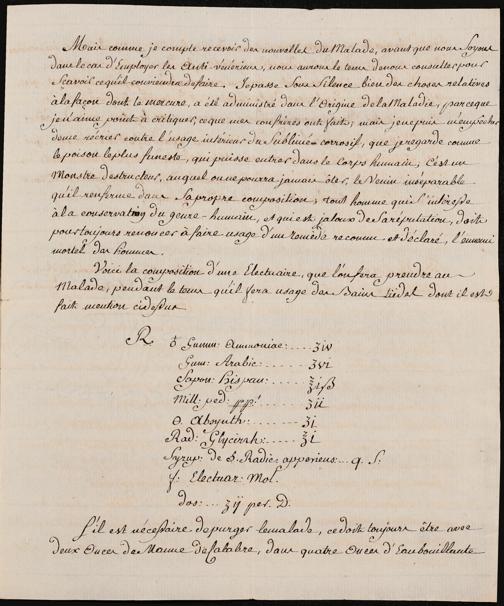 Mais comme je compte recevoir des nouvelles du Malade, avant que nous soyons
dans le cas d'Employer les Anti-Vénériens, nous aurons le tems de nous consulter, pour
sçavoir ce qu'il conviendra de faire. Je passe sous Silence bien des choses relatives
à la façon dont le mercure, a été administré dans l'Origine de la Maladie, parceque
je n'aime point à critiquer, ce que mes confrères ont fait; mais je ne puis m'empêcher
de me récrier contre l'usage intérieur du sublimé corrosif, que je regarde comme
le poison le plus funeste, qui puisse entrer dans le Corps humain; C'est un
Monstre destructeur, auquel on ne pourra jamais ôter, le Venin inséparable
qu'il renferme dans sa propre composition; tout homme qui s'intéresse
à la conservation du genre-humain, et qui est jaloux de sa réputation, doit
pour toujours renoncer à faire usage d'un remède reconnu et déclaré, l'ennemi
mortel des hommes.
Voici la composition d'une Electuaire, que l'on fera prendre au
Malade, pendant le tems qu'il fera usage des Bains tiedes dont il est
fait mention cidessus
℞ Gumm: Ammoniac: ..... ʒiv
Gum: Arabic: ..... ʒvi
Sapon: hispan: ..... ℥iß
Mill: ped: ppt: ..... ʒii
Absynth: ..... ʒi
Rad: Glycirrh: ..... ℥i
Syrup: de 5. Radic: apperiens ... q. S.
f: Electuar: Mol.
dos: ... ʒij per. D.
S'il est nécessaire de purger le malade, ce doit toujours être avec
deux Onces de Manne de Calabre, dans quatre Onces d'Eau bouillante